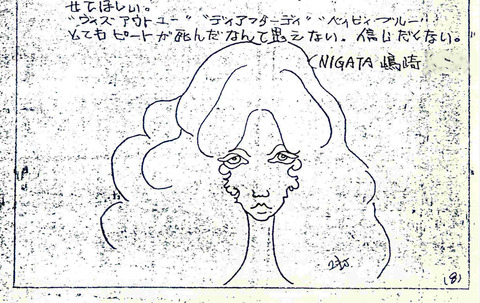 せてほしい。
"ウィズアウトユー" "デイアフターデイ" "ベイビィブルー"
とてもピートが死んだなんて思えない。信じたくない。
(NIGATA 嶋崎
(8)